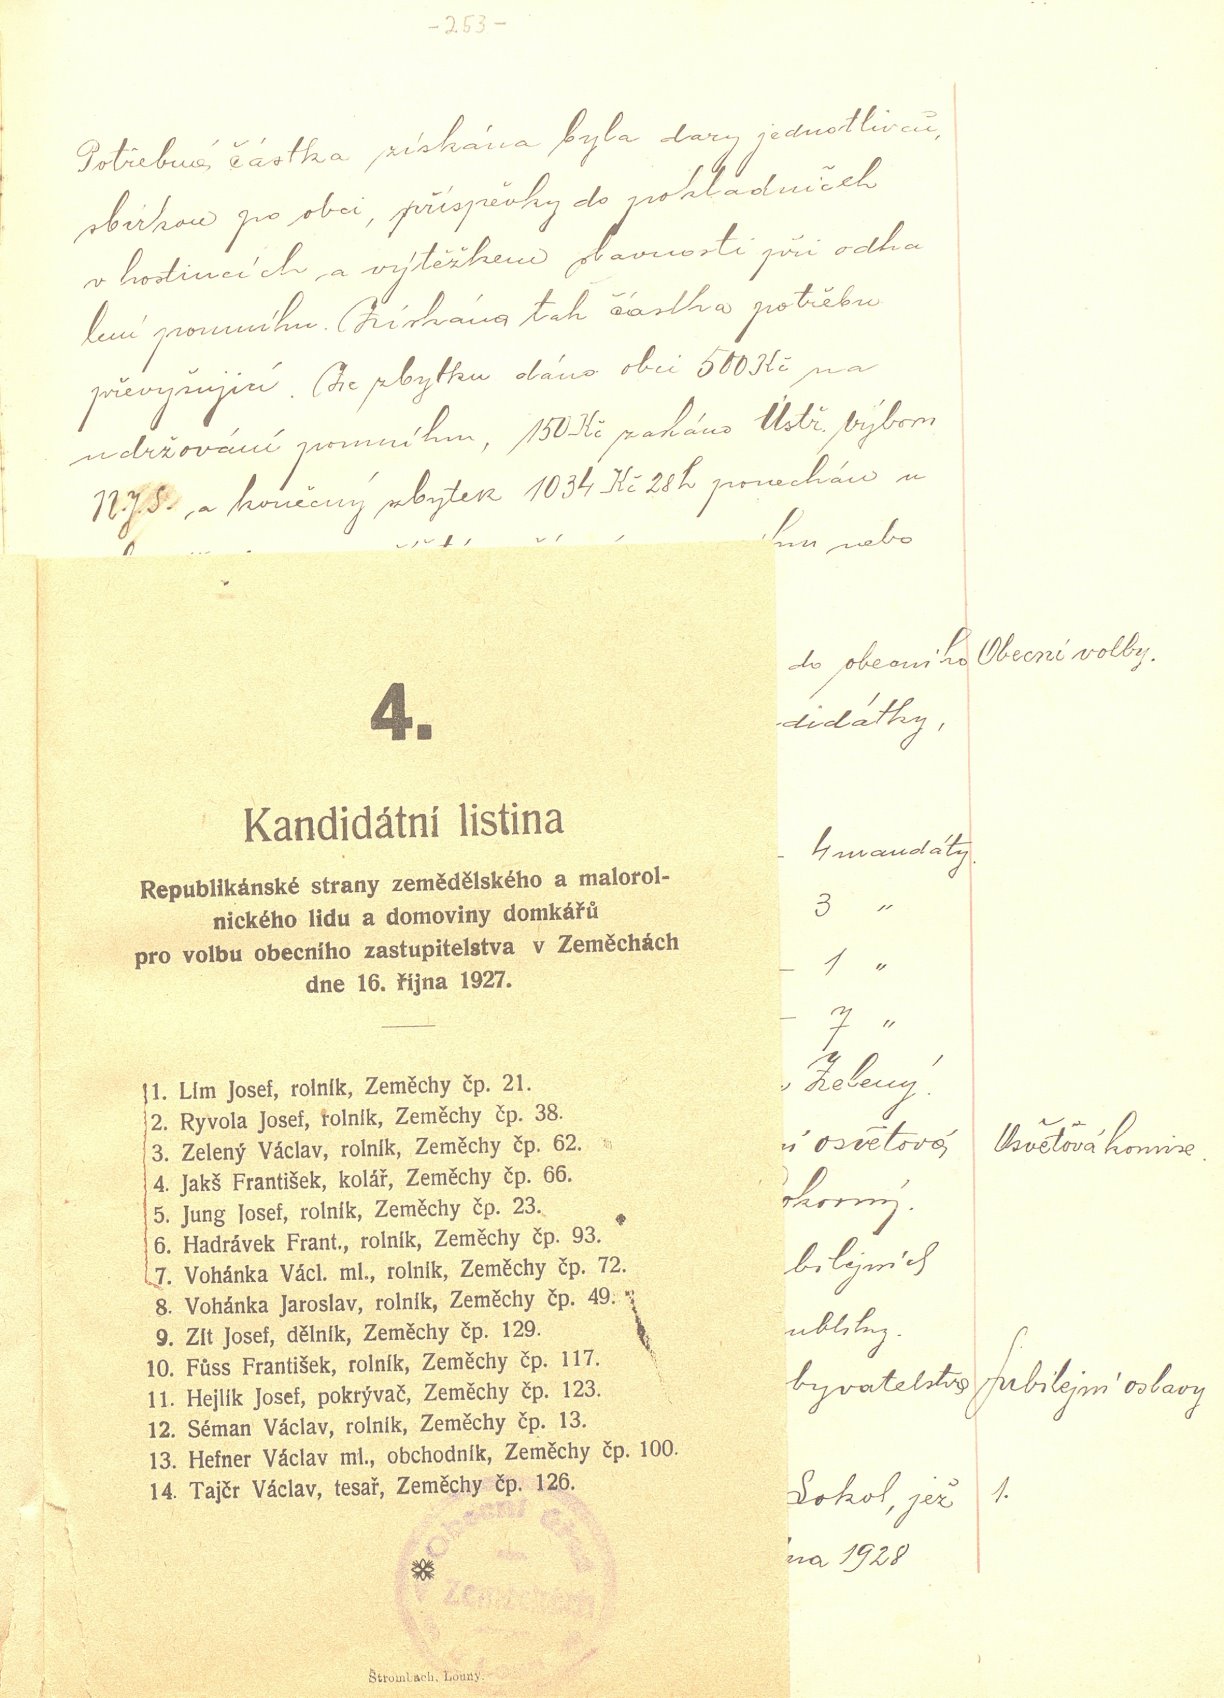 - 253 -
Potřebná částka získána byla dary jednotlivců,
sbírkou po obci, příspěvky do pokladniček
v hostincích a výtěžkem slavnosti při odha
lení pomníku. Získána tak částka potřebu
převyšující. Ze zbytku dáno obci 500 Kč na
udržování pomníku, 150 Kč zasláno Ústř. výboru
N.J.S. a konečný zbytek 1034 Kč 28 h ponechán u
nebo
do obecního Obecní volby.
didátky,
4 mandáty.
3 "
- 1 "
- 7 "
Zelený.
osvětová, Osvětová komise.
okorný.
bilejních
ubliky.
byvatelstva Jubilejní oslavy
Sokol, jež 1.
na 1928
4.
Kandidátní listina
Republikánské strany zemědělského a malorol-
nického lidu a domoviny domkářů
pro volbu obecního zastupitelstva v Zeměchách
dne 16. října 1927.
1. Lím Josef, rolník, Zeměchy čp. 21.
2. Ryvola Josef, rolník, Zeměchy čp. 38.
3. Zelený Václav, rolník, Zeměchy čp. 62.
4. Jakš František, kolář, Zeměchy čp. 66.
5. Jung Josef, rolník, Zeměchy čp. 23.
6. Hadrávek Frant., rolník, Zeměchy čp. 93.
7. Vohánka Václ. ml., rolník, Zeměchy čp. 72.
8. Vohánka Jaroslav, rolník, Zeměchy čp. 49.
9. Zít Josef, dělník, Zeměchy čp. 129.
10. Fůss František, rolník, Zeměchy čp. 117.
11. Hejlík Josef, pokrývač, Zeměchy čp. 123.
12. Séman Václav, rolník, Zeměchy čp. 13.
13. Hefner Václav ml., obchodník, Zeměchy čp. 100.
14. Tajčr Václav, tesař, Zeměchy čp. 126.
Obecní úřad
Zeměchách
Štrombach, Louny.